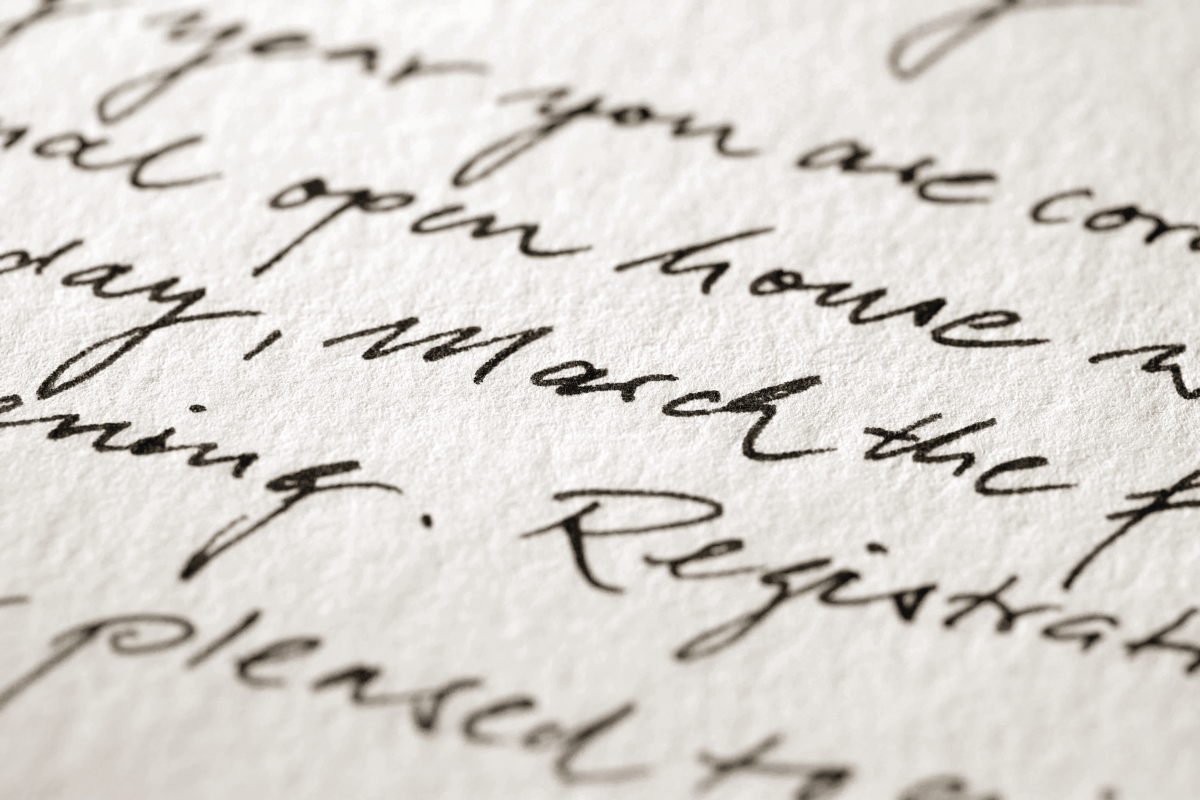 year you are cor
nal open house w
day, March the f
ening. Registrati
pleased to